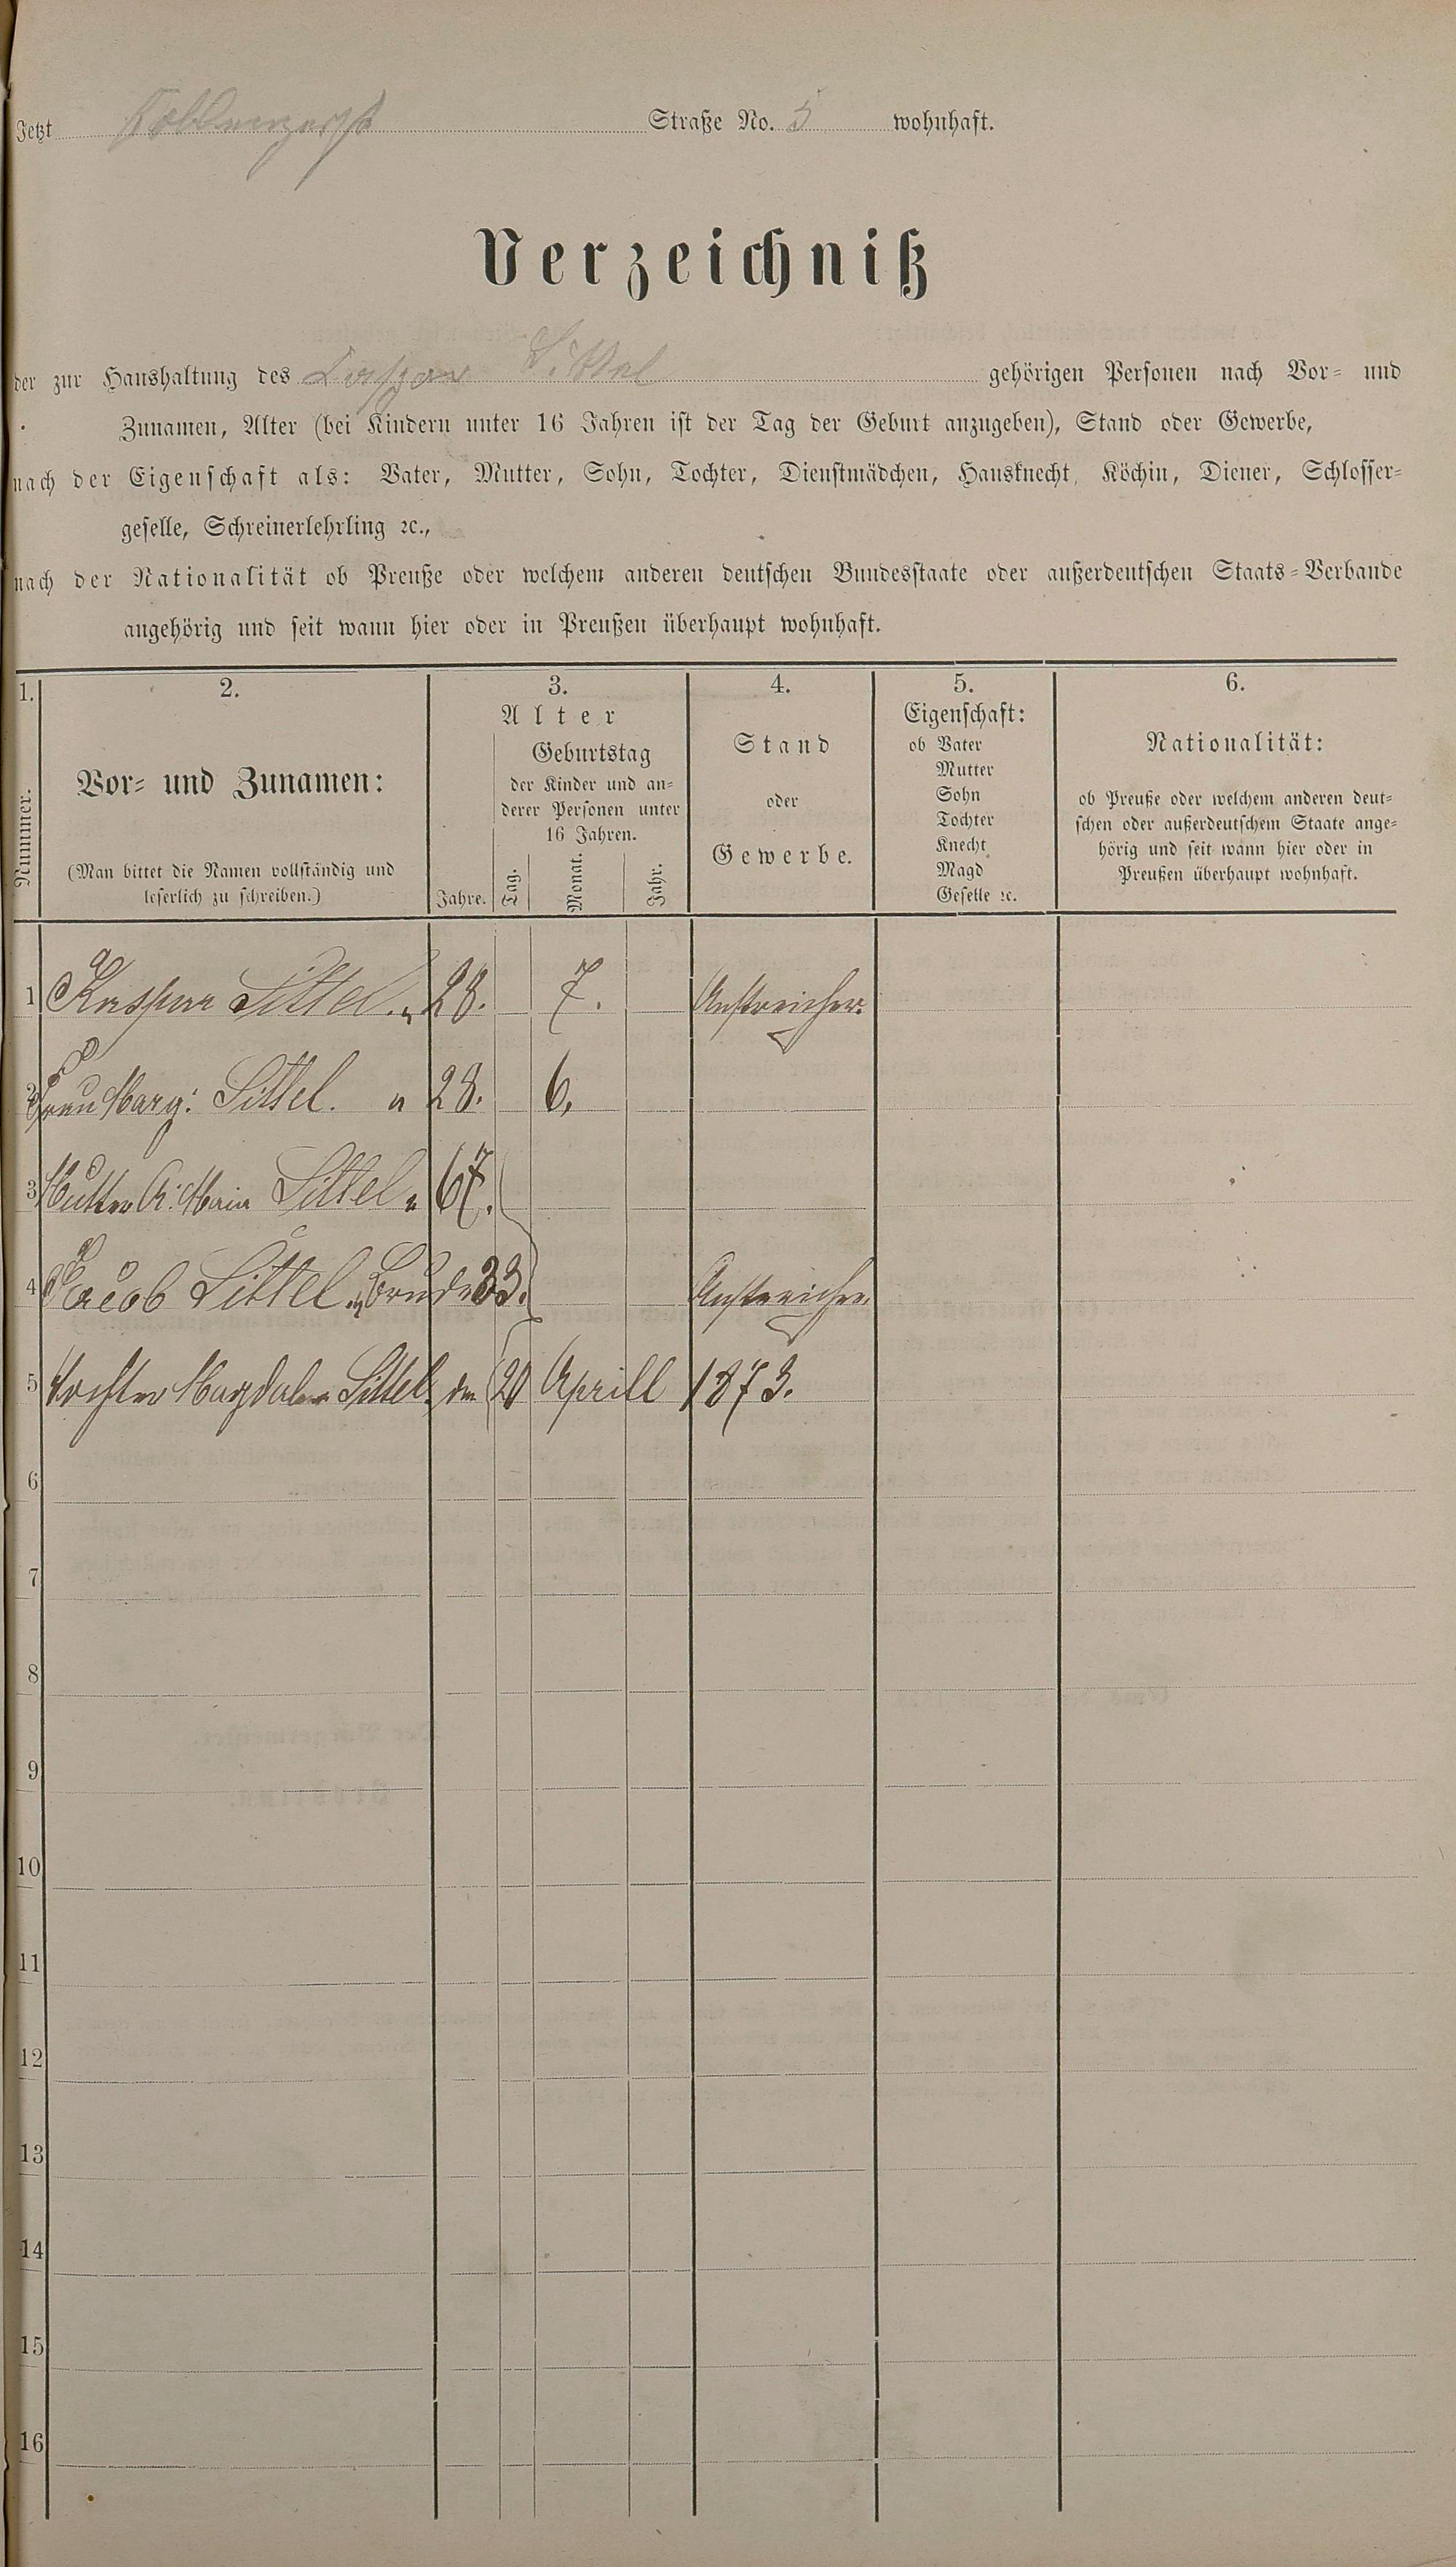 Jetzt Coblenzerst Straße No. 5 wohnhaft.
Verzeichniß
der zur Haushaltung des Caspar Sittel gehörigen Personen nach Vor- und
Zunamen, Alter (bei Kindern unter 16 Jahren ist der Tag der Geburt anzugeben), Stand oder Gewerbe,
nach der Eigenschaft als: Vater, Mutter, Sohn, Tochter, Dienstmädchen, Hausknecht, Köchin, Diener, Schlosser-
geselle, Schreinerlehrling ꝛc.,
nach der Nationalität ob Preuße oder welchem anderen deutschen Bundesstaate oder außerdeutschen Staats-Verbande
angehörig und seit wann hier oder in Preußen überhaupt wohnhaft.
1. 2. 3. 4. 5. 6.
Nummer.
Vor- und Zunamen:
(Man bittet die Namen vollständig und
leserlich zu schreiben.)
Alter
Jahre.
Geburtstag
der Kinder und an-
derer Personen unter
16 Jahren.
Tag. Monat. Jahr.
Stand
oder
Gewerbe.
Eigenschaft:
ob Vater
Mutter
Sohn
Tochter
Knecht
Magd
Geselle ꝛc.
Nationalität:
ob Preuße oder welchem anderen deut-
schen oder außerdeutschem Staate ange-
hörig und seit wann hier oder in
Preußen überhaupt wohnhaft.
1 Kaspar Sittel. 28. 7. Anstreicher.
2 Frau Marg: Sittel. 28. 6.
3 Mutter A: Maria Sittel 67.
4 Jacob Sittel. Bruder 33. Anstreicher.
5 Tochter Magdalena Sittel. den 20 Aprill 1873.
6
7
8
9
10
11
12
13
14
15
16